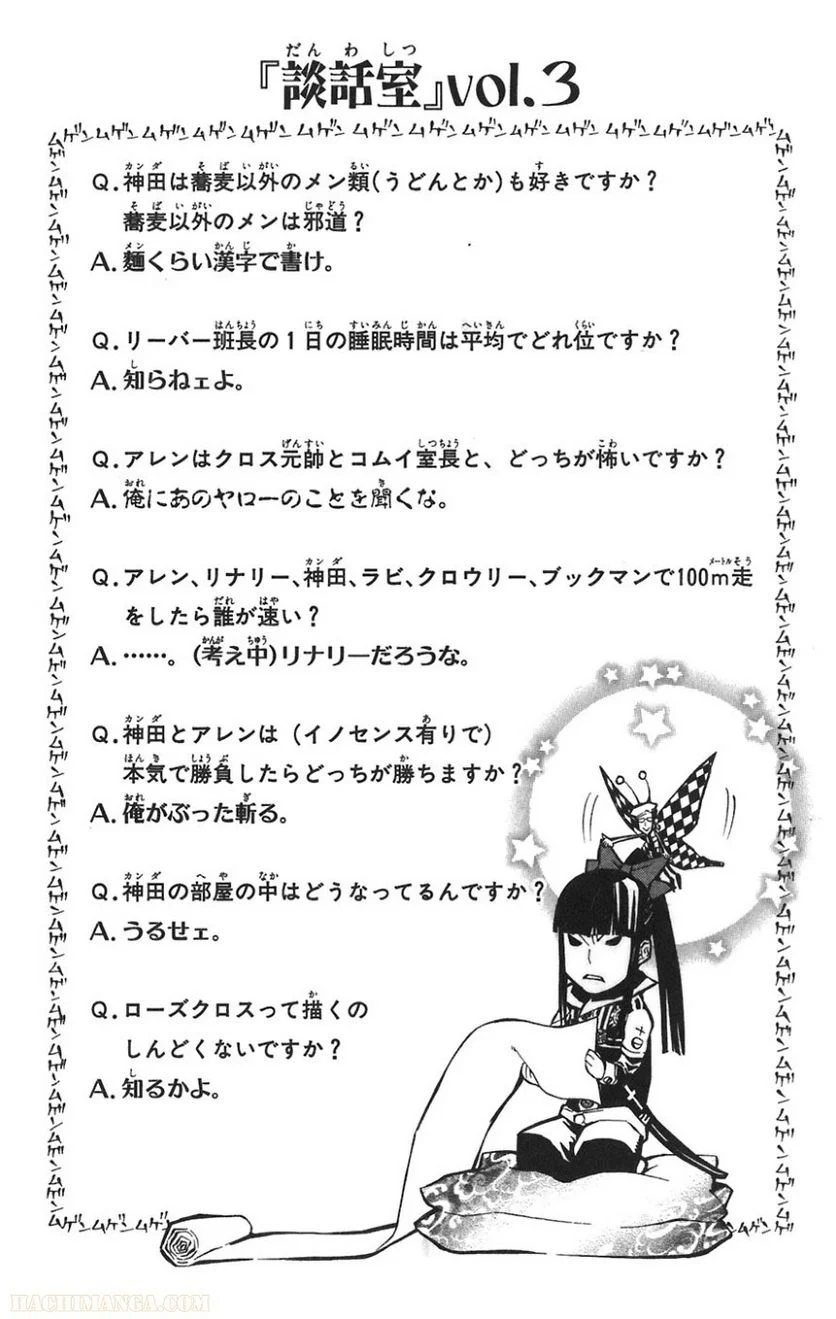 『談話室』vol.3
Q.神田は蕎麦以外のメン類(うどんとか)も好きですか?
蕎麦以外のメンは邪道?
A.麵くらい漢字で書け。
Q.リーバー班長の1日の睡眠時間は平均でどれ位ですか?
A.知らねェよ。
Q.アレンはクロス元帥とコムイ室長と、どっちが怖いですか?
A.俺にあのヤローのことを聞くな。
Q.アレン、リナリー、神田、ラビ、クロウリー、ブックマンで100m走
をしたら誰が速い?
A.……。(考え中)リナリーだろうな。
Q.神田とアレンは(イノセンス有りで)
本気で勝負したらどっちが勝ちますか?
A.俺がぶった斬る。
Q.神田の部屋の中はどうなってるんですか?
A.うるせェ。
Q.ローズクロスって描くの
しんどくないですか?
A.知るかよ。
HACHIMANGA.COM